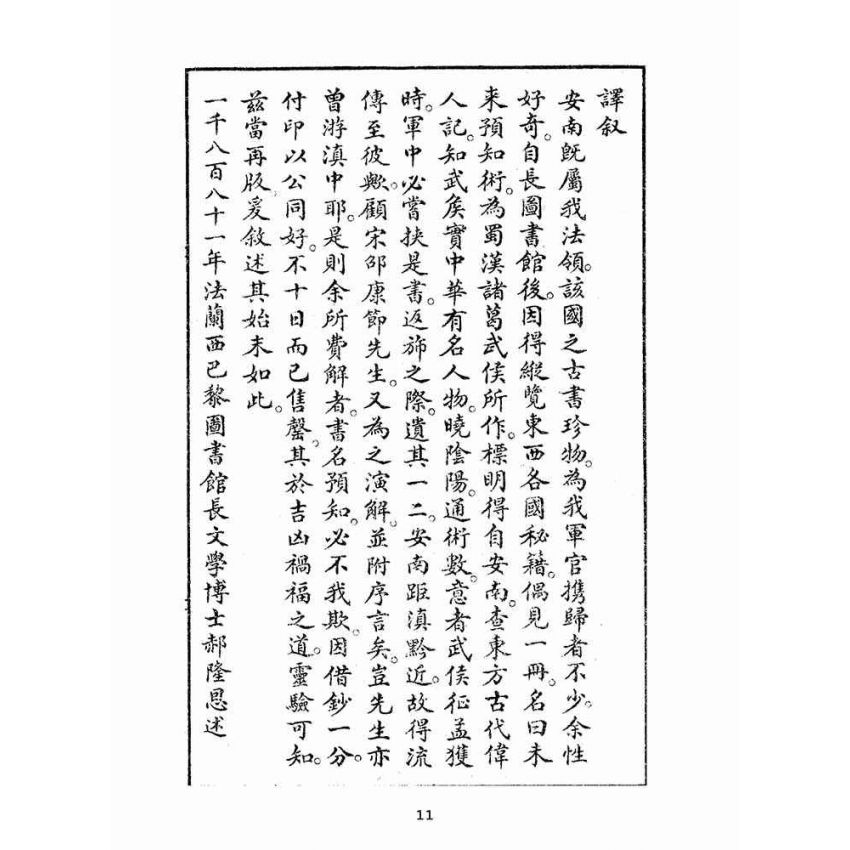 譯叙
安南既屬我法領。該國之古書珍物。為我軍官携歸者不少。余性
好奇。自長圖書館後。因得縱覽東西各國秘籍。偶見一冊。名曰未
来預知術。為蜀漢諸葛武侯所作。標明得自安南。查東方古代偉
人記。知武侯實中華有名人物。曉陰陽。通術數。意者武侯征孟獲
時。軍中必嘗挾是書。返斾之際。遺其一二。安南距滇黔近。故得流
傳至彼歟。顧宋邵康節先生。又為之演解。並附序言矣。豈先生亦
曾游滇中耶。是則余所費解者。書名預知。必不我欺。因借鈔一分。
付印以公同好。不十日而已售罄。其於吉凶禍福之道。靈驗可知。
茲當再版爰敘述其始末如此。
一千八百八十一年法蘭西巴黎圖書館長文學博士郝隆恩述
11